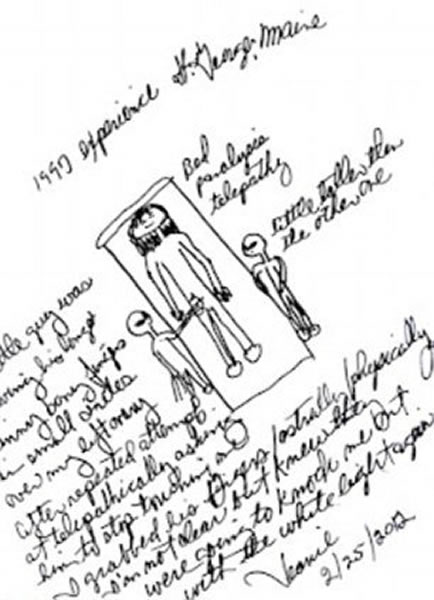 1997 experience St. George, Maine
Bed
paralysis
telepathy
little taller than
the other one
little guy was
his long
long fingers
in small circles
over my left ovary
after repeated attempts
at telepathically asking
him to stop touching me
I grabbed his fingers/astrally/physically
I'm not clear but knew they
were going to knock me out
with the white light again
2/25/2012